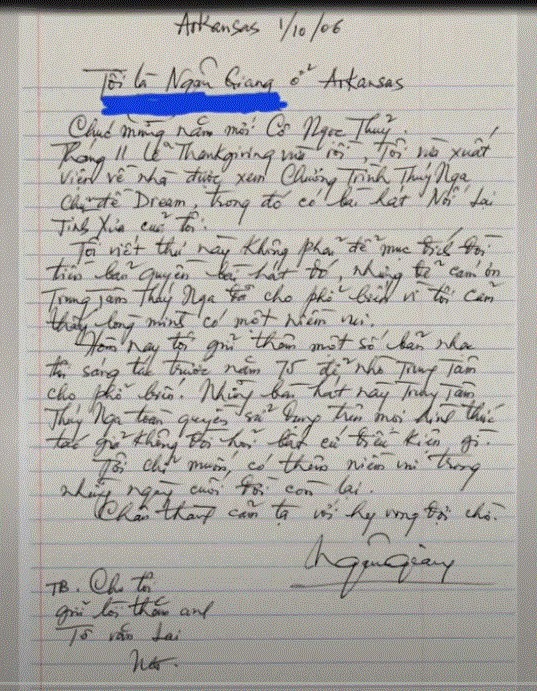 Arkansas 1/10/06
Tôi là Ngân Giang ở Arkansas
Chúc mừng năm mới Cô Ngọc Thuỷ.
Tháng 11 Lễ Thanksgiving vừa rồi, Tôi vừa xuất
viện về nhà được xem Chương Trình Thuý Nga
Chủ đề Dream, trong đó có bài hát Nối Lại
Tình Xưa của tôi.
Tôi viết thư này không phải để mục đích đòi
tiền bản quyền bài hát đó, nhưng để cám ơn
Trung Tâm Thuý Nga đã cho phổ biến vì tôi cảm
thấy lòng mình có một niềm vui.
Hôm nay tôi gửi thêm một số bản nhạc
tôi sáng tác trước năm 75 để nhờ Trung Tâm
cho phổ biến. Những bản hát này Trung Tâm
Thuý Nga toàn quyền sử dụng trên mọi hình thức
tác giả không đòi hỏi bất cứ điều kiện gì.
Tôi chỉ muốn, có thêm niềm vui trong
những ngày cuối đời còn lại.
Chân thành cảm tạ với hy vọng đợi chờ.
Ngân Giang
TB. Cho tôi
gửi lời thăm anh
Tô Văn Lai